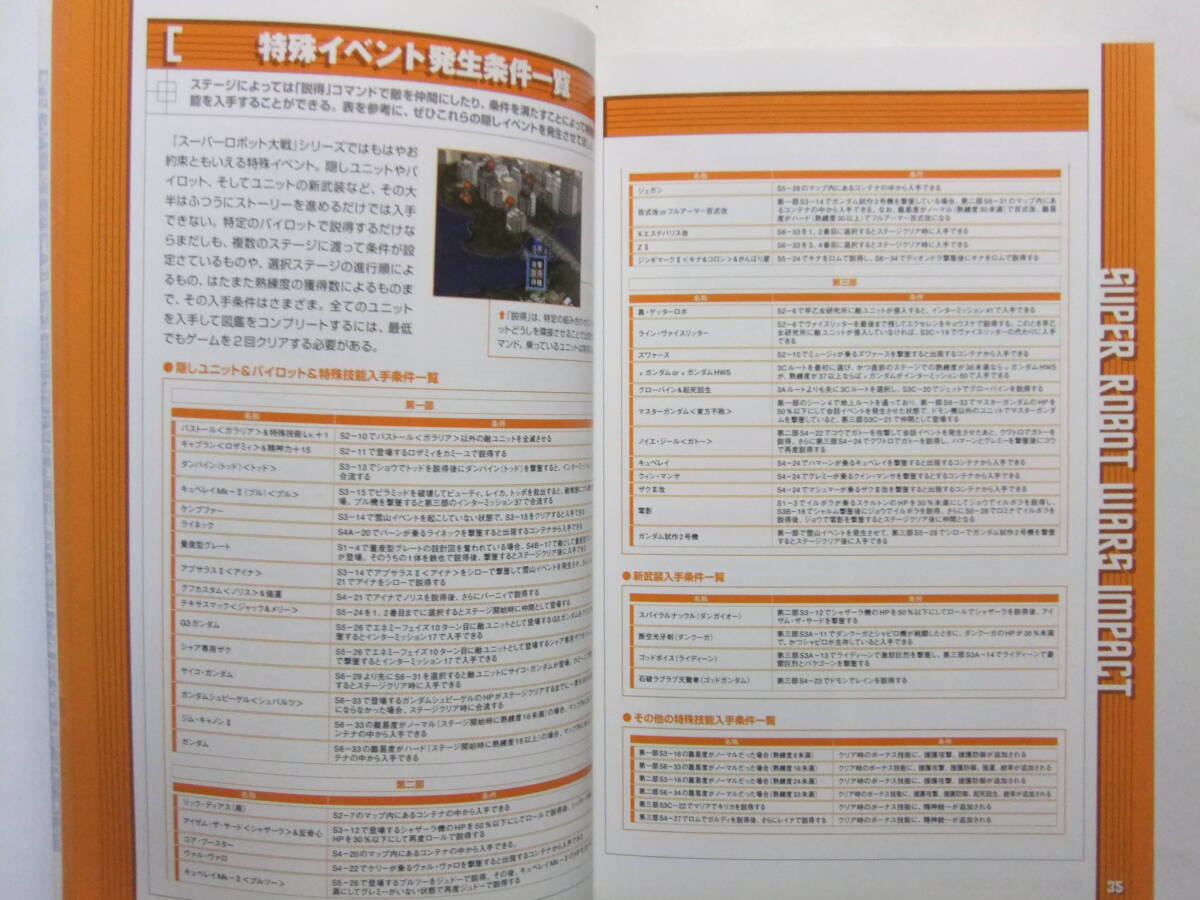 特殊イベント発生条件一覧
ステージによっては「説得」コマンドで敵を仲間にしたり、条件を満たすことによって
能を入手することができる。表を参考に、ぜひこれらの隠しイベントを発生させて
「スーパーロボット大戦」シリーズではもはやお
約束ともいえる特殊イベント。隠しユニットやパ
イロット、そしてユニットの新武装など、その大
半はふつうにストーリーを進めるだけでは入手
できない。特定のパイロットで説得するだけな
らまだしも、複数のステージに渡って条件が設
定されているものや、選択ステージの進行順によ
るもの、はたまた熟練度の獲得数によるものま
で、その入手条件はさまざま。全てのユニット
を入手して図鑑をコンプリートするには、最低
でもゲームを2回クリアする必要がある。
⬆「説得」は、特定の組み合わせの
ットどうしを隣接させることで
マンド。乗っているユニットは
●隠しユニット&パイロット&特殊技能入手条件一覧
第一部
名称 条件
バストール<ガラリア>&特殊技能Lv.+1 S2-10でバストール<ガラリア>以外の敵ユニットを全滅させる
ギャプラン<ロザミィ>&精神力+15 S2-11で登場するロザミィをカミーユで説得する
ダンバイン(トッド)<トッド> S3-13でショウでトッドを説得後にダンバイン(トッド)を撃墜すると、
合流する
キュベレイMk-Ⅱ(プル)<プル> S3-15でピラミッドを破壊してビューティ、レイカ、トッポを救出すると、
場。プル機を撃墜すると第三部のインターミッション37で合流する
ケンプファー S3-14で雪山イベントを起こしていない状態で、S3-15をクリアすると入手できる
ライネック S4A-20でバーンが乗るライネックを撃墜すると出現するコンテナから入手
量産型グレート S1-4で量産型グレートの設計図を奪われている場合、S4B-17で敵として
が登場。そのうちの1体を鉄也で説得後、撃墜するとステージクリア後に入手できる
アプサラスⅡ<アイナ> S3-14でアプサラスⅡ<アイナ>をシローで撃墜して雪山イベントを発生させ、
21でアイナをシローで説得する
グフカスタム<ノリス>&強運 S4-21でアイナでノリスを説得後、さらにバーニィで説得する
テキサスマック<ジャック&メリー> S5-24を1、2番目までに選択するとステージ開始時に仲間として登場する
G3ガンダム S5-26でエネミーフェイズ10ターン目に敵ユニットとして登場するG3ガンダムを
墜するとインターミッション17で入手できる
シャア専用ザク S5-26でエネミーフェイズ10ターン目に敵ユニットとして登場するシャア専用ザクを
で撃墜するとインターミッション17で入手できる
サイコ・ガンダム S6-29より先にS6-31を選択すると敵ユニットにサイコ・ガンダムが登場。
するとステージクリア時に入手できる
ガンダムシュピーゲル<シュバルツ> S6-33で登場するガンダムシュピーゲルのHPがステージクリアするまでに
にならなかった場合、ステージクリア時に合流する
ジム・キャノンⅡ S6-33の難易度がノーマル(ステージ開始時に熟練度16未満)の場合、
ンテナの中から入手できる
ガンダム S6-33の難易度がハード(ステージ開始時に熟練度16以上)の場合、マップ
テナの中から入手できる
第二部
名称 条件
リック・ディアス(黒) S2-7のマップ内にあるコンテナの中から入手できる
アイザム・ザ・サード<シャザーラ>&反骨心 S3-12で登場するシャザーラ機のHPを50%以下にしてロールで説得後、
HPを30%以下にして再度ロールで説得する
コア・ブースター S4-20のマップ内にあるコンテナの中から入手できる。
ヴァル・ヴァロ S4-22でケリーが乗るヴァル・ヴァロを撃墜すると出現するコンテナから入手できる
キュベレイMk-Ⅱ<プルツー> S5-26で登場するプルツーをジュドーで説得。その後、キュベレイMk-Ⅱの
満にしてグレミーがいない状態で再度ジュドーで説得する
名称 条件
ジェガン S5-28のマップ内にあるコンテナの中から入手できる
百式改orフルアーマー百式改 第一部S3-14でガンダム試作2号機を撃墜している場合、第二部S6-31のマップ内にあ
るコンテナの中から入手できる。なお、難易度がノーマル(熟練度30未満)で百式改、難易
度がハード(熟練度30以上)でフルアーマー百式改になる
Xエステバリス改 S6-33を1、2番目に選択するとステージクリア時に入手できる
ZⅡ S6-33を3、4番目に選択するとステージクリア時に入手できる
ジンギマークⅡ<キナ&コロン>&がんばり屋 S5-24でキナをロムで説得し、S6-34でディオンドラ撃墜後にキナをロムで説得する
第三部
名称 条件
真・ゲッターロボ S2-6で早乙女研究所に敵ユニットが侵入すると、インターミッション41で入手できる
ライン・ヴァイスリッター S2-6でヴァイスリッターを最後まで残してエクセレンをキョウスケで説得する。このとき早乙
女研究所に敵ユニットが侵入していなければ、S3C-19でヴァイスリッターの代わりに入手
できる
ズワァース S2-10でミュージィが乗るズワァースを撃墜すると出現するコンテナから入手できる
νガンダムorνガンダムHWS 3Cルートを最初に選び、かつ直前のステージでの熟練度が38未満ならνガンダムHWS
が、熟練度が37以上ならばνガンダムがインターミッション50で入手できる
グローバイン&起死回生 3Aルートよりも先に3Cルートを選択し、S3C-20でジェットでグローバインを説得する
マスターガンダム<東方不敗> 第一部のシーン4で地上ルートを通っており、第一部S4-33でマスターガンダムのHPを
50%以下にして会話イベントを発生させた状態で、ドモン機以外のユニットでマスターガンダ
ムを撃墜していると、第三部S3C-21で仲間として登場する
ノイエ・ジール<ガトー> 第二部S4-22でコウでガトーを攻撃して会話イベントを発生させたあと、クワトロでガトーを説
得。さらに第三部S4-24でクワトロでガトーを説得し、ハマーンとグレミーを撃墜後にコウ
で再度説得する
キュベレイ S4-24でハマーンが乗るキュベレイを撃墜すると出現するコンテナから入手できる
クィン・マンサ S4-24でグレミーが乗るクィン・マンサを撃墜するとするコンテナから入手できる
ザクⅢ改 S4-24でマシュマーが乗るザクⅢ改を撃墜すると出現するコンテナから入手できる
電影 S1-3でイルボラが乗るスケルトンのHPを30%未満にしてジョウでイルボラを説得し、
S3B-18でシャルム撃墜後にジョウでイルボラを説得。さらにS5-28でロミナでイルボラを
説得後、ジョウで電影を撃墜するとステージクリア後に仲間となる
ガンダム試作2号機 第一部で雪山イベントを発生させて、第三部S5-28でシローでガンダム試作2号機を撃墜
するとステージクリア後に入手できる
●新武装入手条件一覧
名称 条件
スパイラルナックル(ダンガイオー) 第二部S3-12でシャザーラ機のHPを50%以下にしてロールでシャザーラを説得後、アイ
ザム・ザ・サードを撃墜する
断空光牙剣(ダンクーガ) 第三部S3A-11でダンクーガとシャピロ機が戦闘したときに、ダンクーガのHPが30%未満
で、かつシャピロが生存していると入手できる
ゴッドボイス(ライディーン) 第三部S3A-13でライディーンで激怒巨烈を撃墜し、第三部S3A-14でライディーンで豪
雷巨烈とバラゴーンを撃墜する
石破ラブラブ天驚拳(ゴッドガンダム) 第三部S4-23でドモンでレインを説得する
●その他の特殊技能入手条件一覧
名称 条件
第一部S3-16の難易度がノーマルだった場合(熟練度8未満) クリア時のボーナス技能に、援護攻撃、援護防御が追加される
第一部S6-33の難易度がノーマルだった場合(熟練度16未満) クリア時のボーナス技能に、援護攻撃、援護防御、強運、統率が追加される
第二部S3-16の難易度がノーマルだった場合(熟練度24未満) クリア時のボーナス技能に、援護攻撃、援護防御が追加される
第二部S6-34の難易度がノーマルだった場合(熟練度33未満) クリア時のボーナス技能に、援護攻撃、援護防御、起死回生、統率が追加される
第三部S3C-22でマリアでキリカを説得する クリア時のボーナス技能に、精神統一が追加される
第三部S4-27でロムでガルディを説得後、さらにレイナで説得する クリア時のボーナス技能に、精神統一が追加される
SUPER ROBOT WARS IMPACT
35